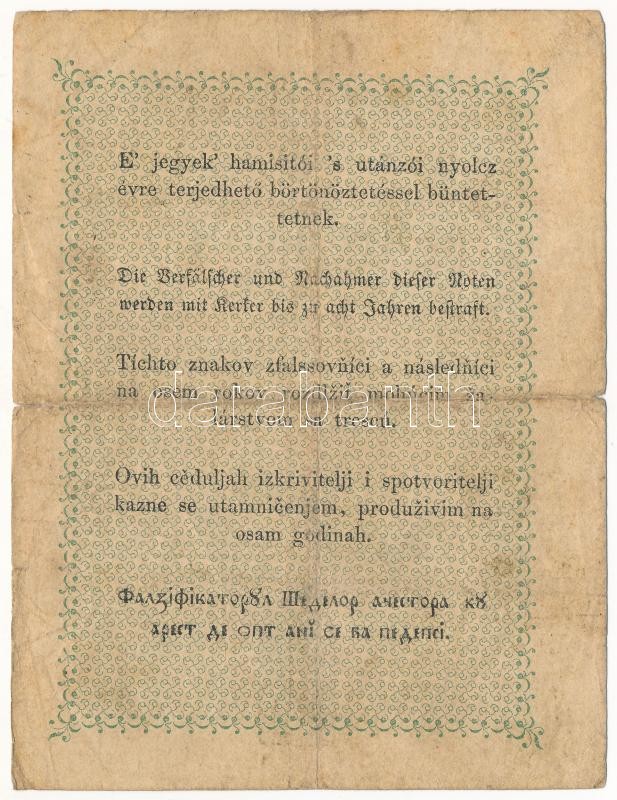 E' jegyek' hamisitói 's utánzói nyolcz
évre terjedhető börtönöztetéssel büntet-
tetnek.
Die Verfälscher und Nachahmer dieser Noten
werden mit Kerker bis zu acht Jahren bestraft.
Tíchto znakov zfalssovňíci a následňíci
na osem rokov
darabanth
lárstvem sa trescú.
Ovih cèduljah izkrivitelji i spotvoritelji
kazne se utamničenjem, produživim na
osam godinah.
Фалꙁіфікаторꙋл Шеделор ачестора кꙋ
арест де опт анĭ се ва педепсі.